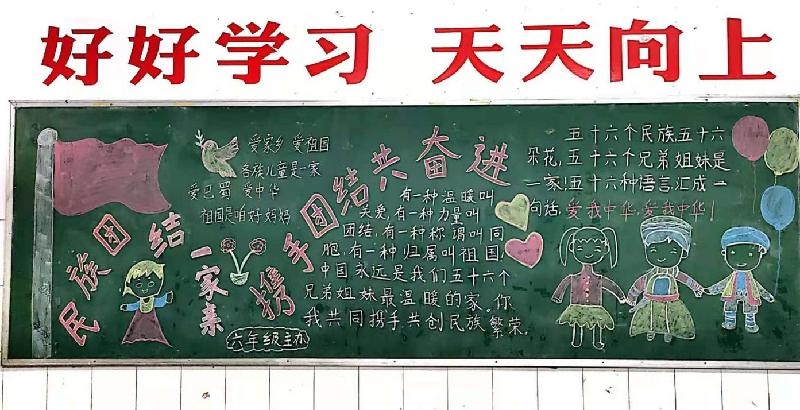 好好学习 天天向上
民族团结一家亲
爱家乡 爱祖国
各族儿童是一家
爱巴蜀 爱中华
祖国是咱好妈妈
携手团结共奋进
有一种温暖叫
关爱,有一种力量叫
团结,有一种称谓叫同
胞,有一种归属叫祖国
中国永远是我们五十六个
兄弟姐妹最温暖的家,你
我共同携手共创民族繁荣.
六年级主办
五十六个民族五十六
朵花,五十六个兄弟姐妹是
一家!五十六种语言汇成一
句话,爱我中华,爱我中华!